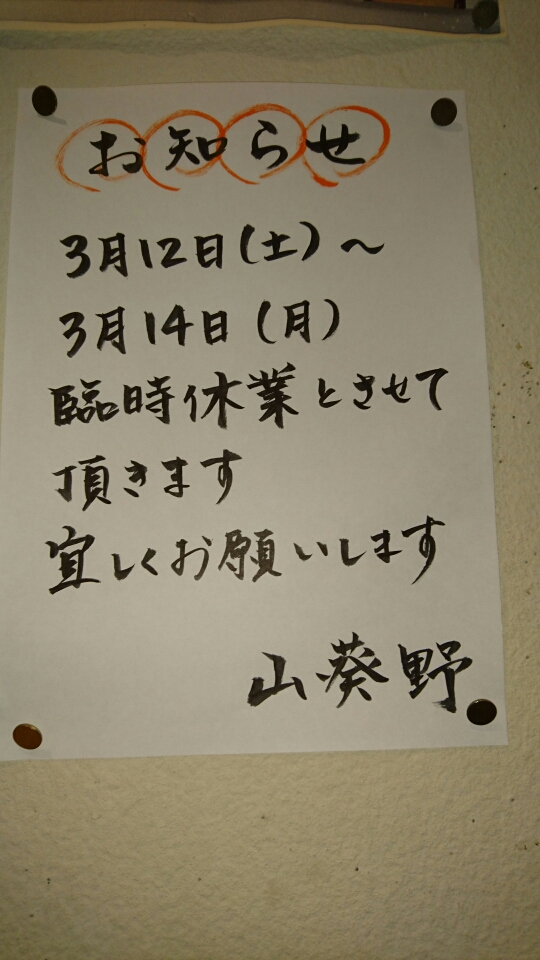 お知らせ
3月12日(土)～
3月14日(月)
臨時休業とさせて
頂きます
宜しくお願いします
山葵野